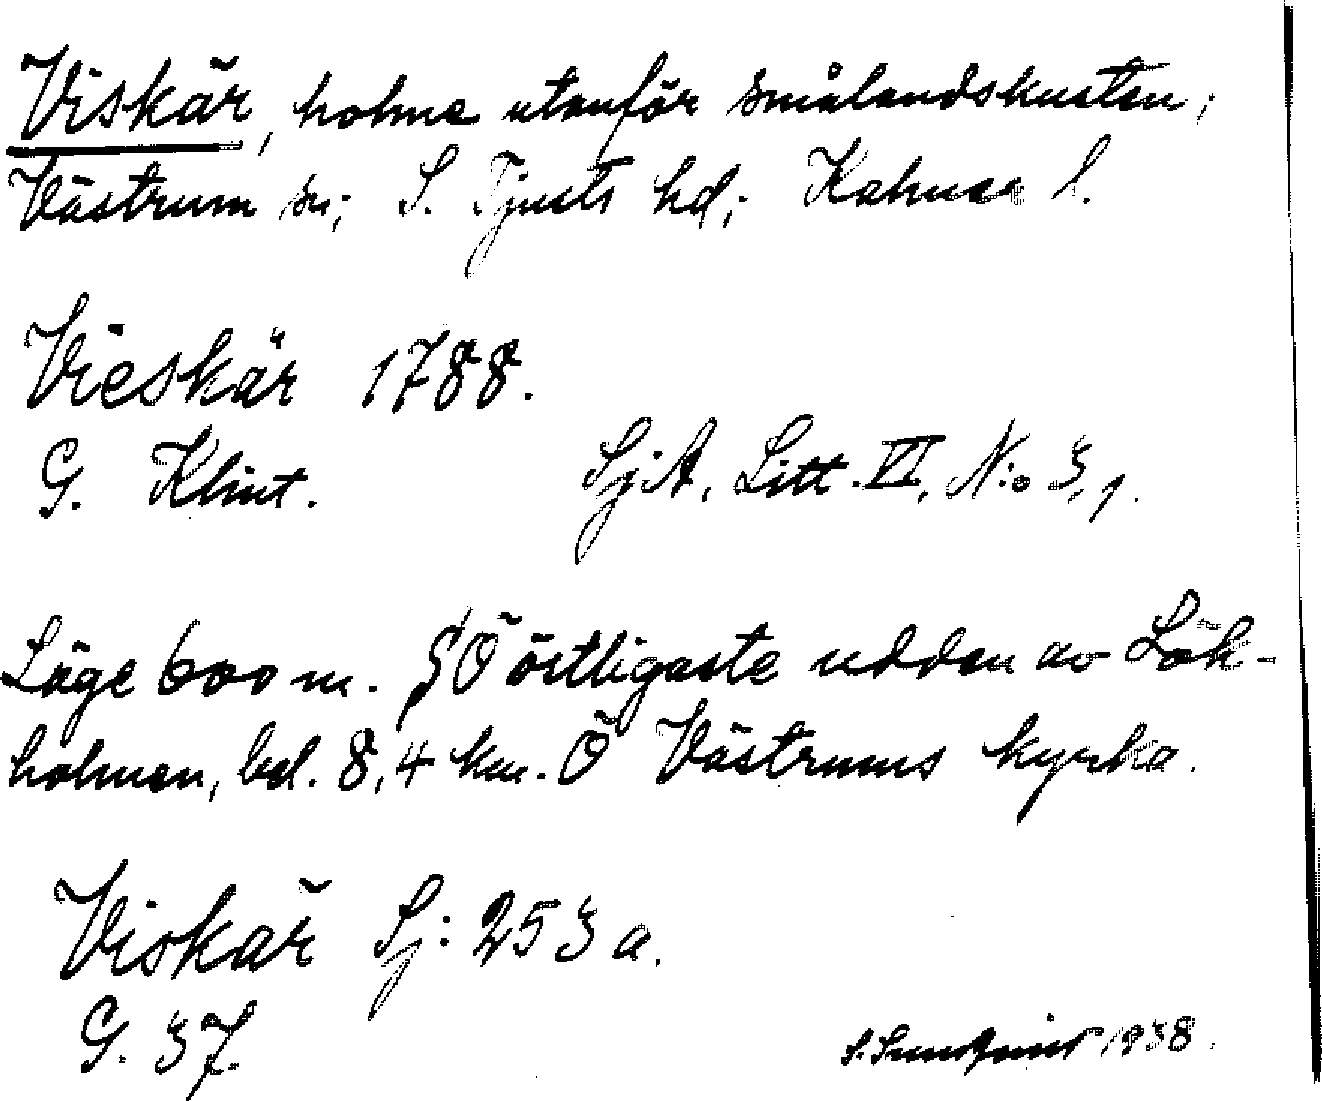 Viskär, holme utanför Smålandskusten,
Västrum sn; S. Tjusts hd; Kalmar l.
Vieskär 1788.
G. Klint. SjA, Litt. VI, N:o 3,1.
Läge 600 m. SÖ östligaste udden av Lök-
holmen, bel. 8,4 km. Ö Västrums kyrka.
Viskär Sj: 253 a.
G. 37.
S. Sundqvist 1938.